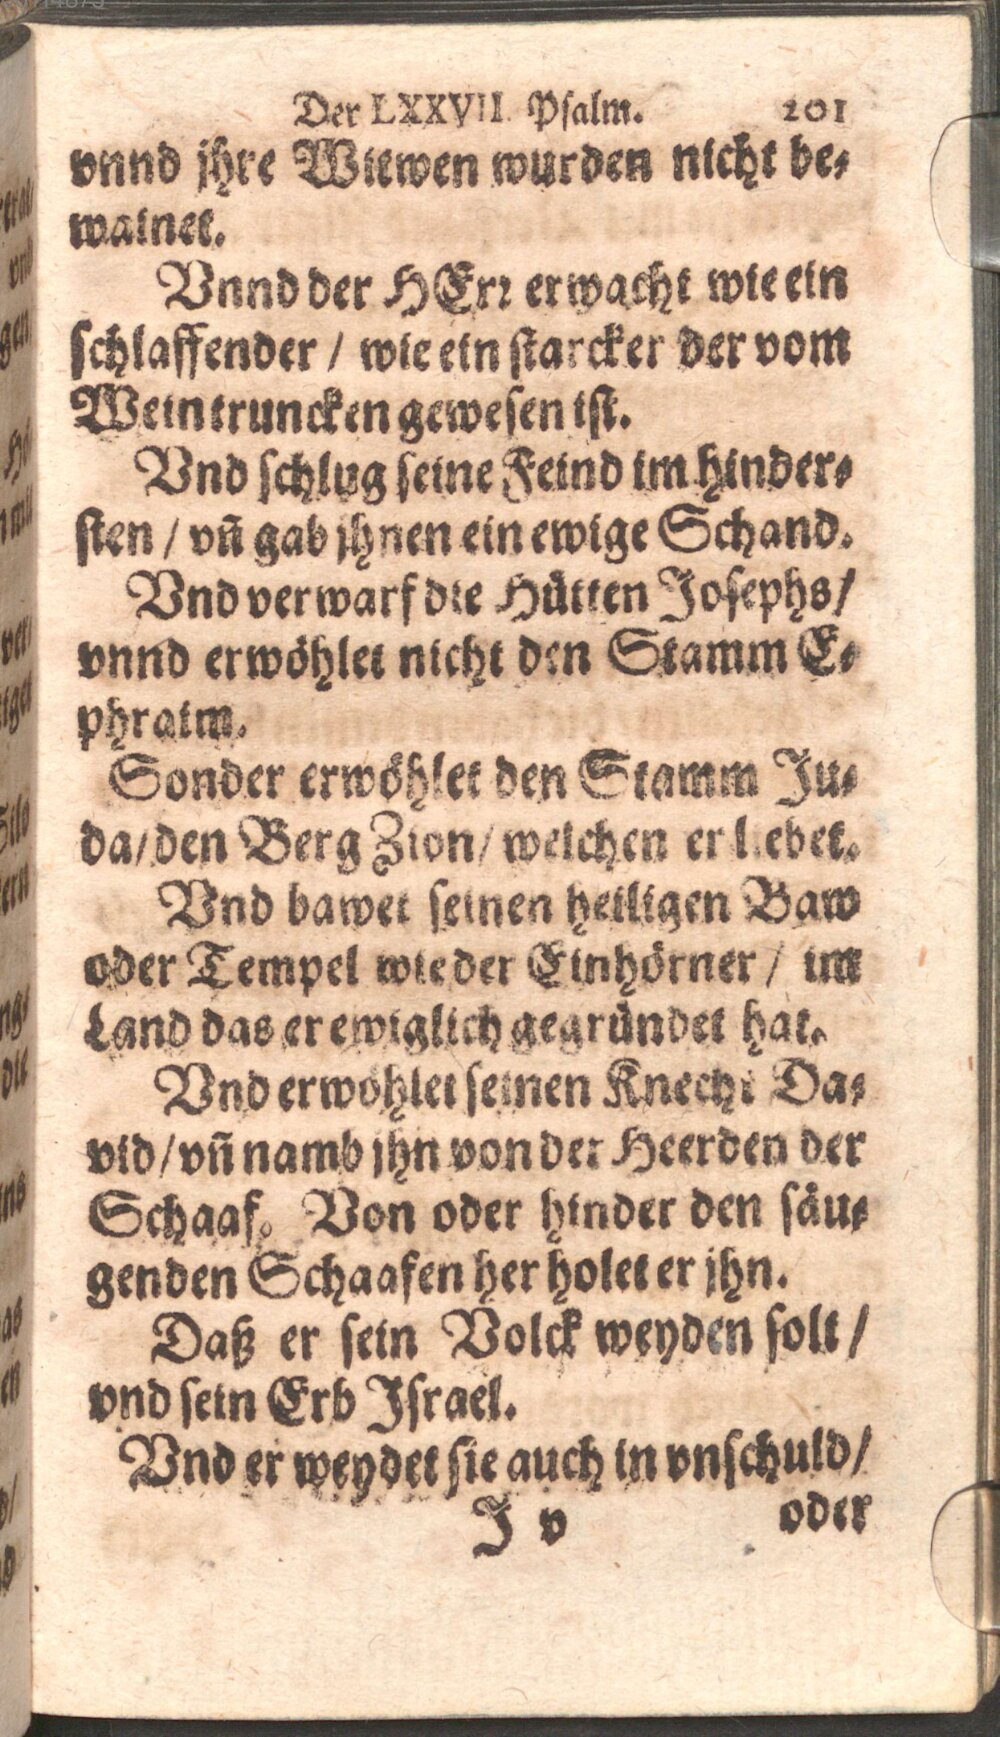 Der LXXVII. Psalm. 201
vnnd jhre Witwen wurden nicht be⸗
wainet.
Vnnd der HErr erwacht wie ein
schlaffender / wie ein starcker der vom
Wein truncken gewesen ist.
Vnd schlug seine Feind im hinder⸗
sten / vñ gab jhnen ein ewige Schand.
Vnd verwarf die Hütten Josephs /
vnnd erwöhlet nicht den Stamm E⸗
phraim.
Sonder erwöhlet den Stamm Ju⸗
da / den Berg Zion / welchen er liebet.
Vnd bawet seinen heiligen Baw
oder Tempel wie der Einhörner / im
Land das er ewiglich gegründet hat.
Vnd erwöhlet seinen Knecht Da⸗
vid / vñ namb jhn von der Heerden der
Schaaf. Von oder hinder den säu⸗
genden Schaafen her holet er jhn.
Daß er sein Volck weyden solt /
vnd sein Erb Israel.
Vnd er weydet sie auch in vnschuld /
J v oder